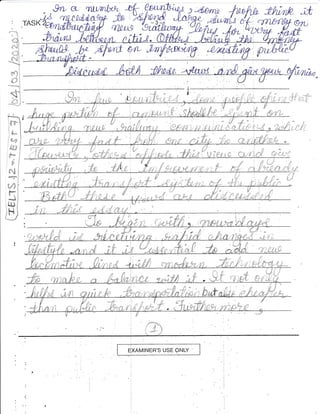 TASK
In a number of countries, some people think it
is necessary to spend large sums of money on
constructing new railway lines for very fast
trains between cities. Others believe the money
should be spent on improving existing public
transport.
Discuss both these views and give your opinion.
04/03/2020
IELTS 12-TEST 7
In few countries, some people opine that
huge portion of amount should be spent on
building new railway communications, which
are very fast from one city to another.
However, others oppose this view and give
priority to the improvement of already
existing transport system of the public
Both these views are discussed
in this essay.
To begin with, nowadays
world is receiving rapid changes in
lifestyle and it is essential to add new
locomotive lines with modern technology
to make a balance with it. It not only
helps in quick transportation but also cheaper
than public transport. Furthermore,
1
EXAMINER'S USE ONLY